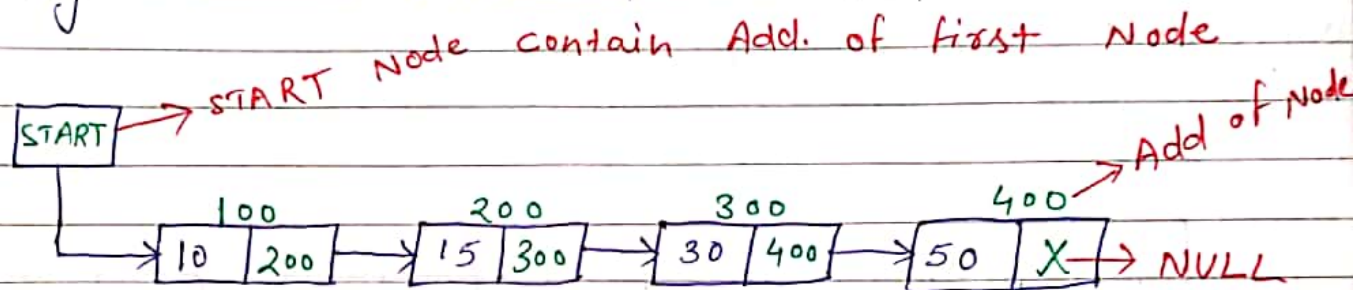 START Node contain Add. of first Node
START
Add of Node
100 200 300 400
10 200 15 300 30 400 50 X NULL